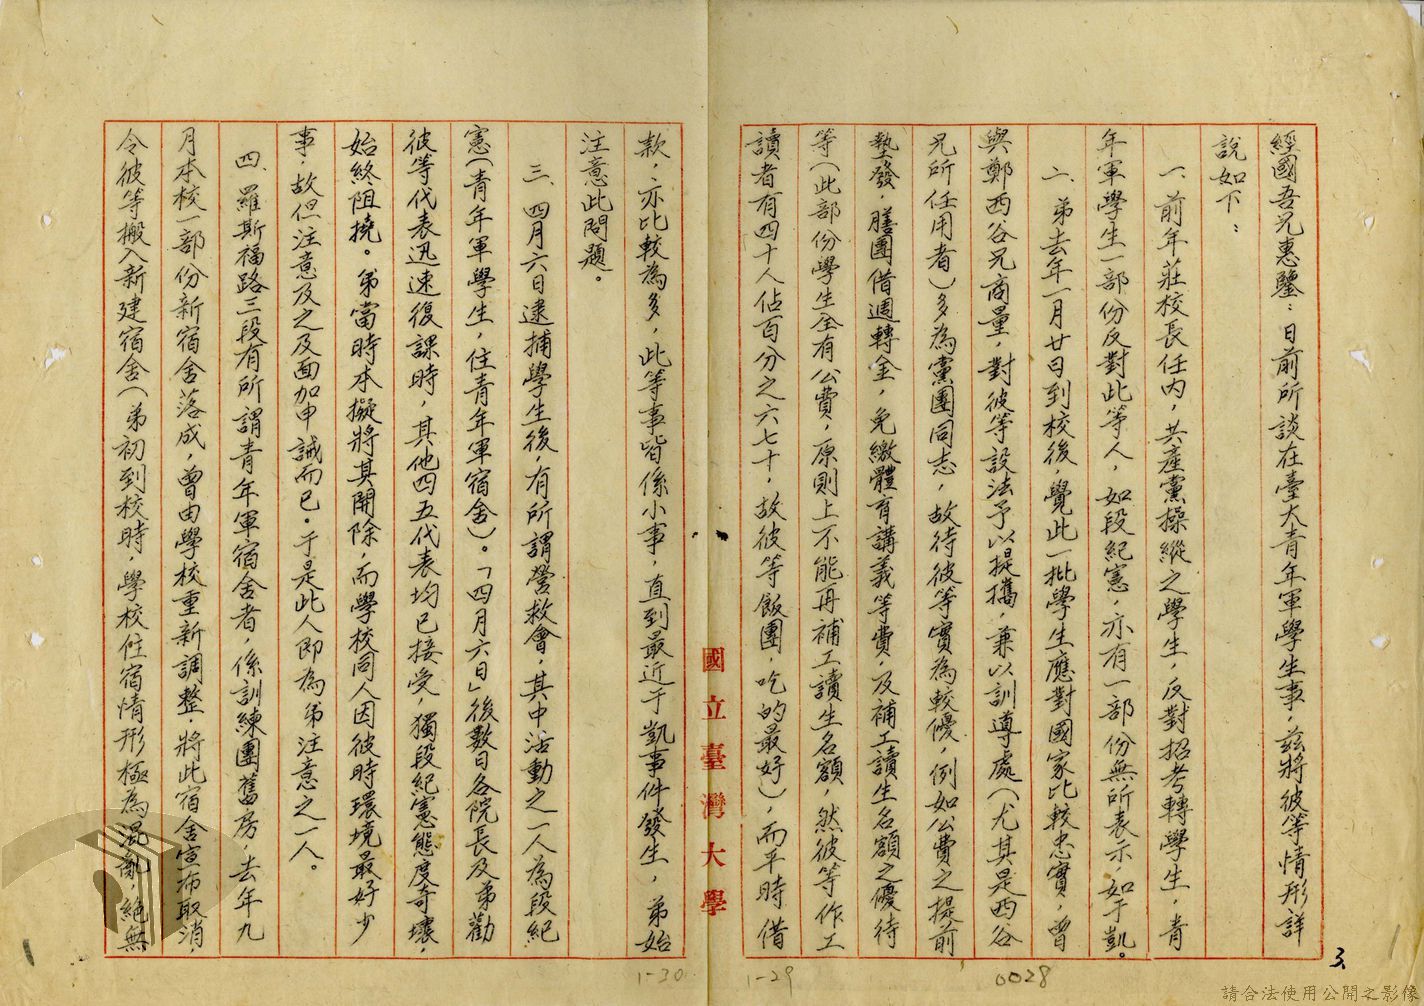 經國吾兄惠鑒：日前所談在臺大青年軍學生事，茲將彼等情形詳
說如下：
一、前年莊校長任內，共產黨操縱之學生，反對招考轉學生，青
年軍學生一部份反對此等人，如段紀憲，亦有一部份無所表示，如于凱。
二、弟去年一月廿日到校後，覺此一批學生應對國家比較忠實，曾
與鄭西谷兄商量，對彼等設法予以提攜，兼以訓導處（尤其是西谷
兄所任用者）多為黨團同志，故待彼等實為較優，例如公費之提前
墊發，膳團借週轉金，免繳體育講義等費，及補工讀生名額之優待
等（此部份學生全有公費，原則上不能再補工讀生名額，然彼等作工
讀者有四十人佔百分之六七十，故彼等飯團，吃的最好），而平時借
國立臺灣大學
款，亦比較為多，此等事皆係小事，直到最近于凱事件發生，弟始
注意此問題。
三、四月六日逮捕學生後，有所謂營救會，其中活動之一人為段紀
憲（青年軍學生，住青年軍宿舍）。「四月六日」後數日各院長及弟勸
彼等代表迅速復課時，其他四五代表均已接受，獨段紀憲態度奇壞，
始終阻撓。弟當時本擬將其開除，而學校同人因彼時環境最好少
事，故但注意及之及面加申誡而已。于是此人即為弟注意之一人。
四、羅斯福路三段有所謂青年軍宿舍者，係訓練團舊房，去年九
月本校一部份新宿舍落成，曾由學校重新調整，將此宿舍宣布取消，
令彼等搬入新建宿舍（弟初到校時，學校住宿情形極為混亂，絕無
3
0028
1-29
1-30
請合法使用公開之影像